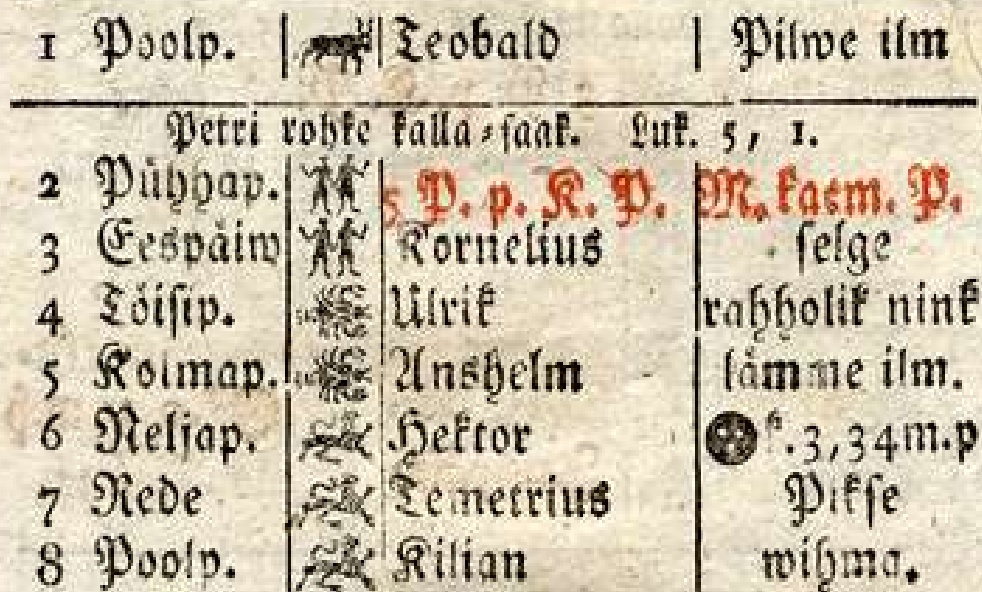 1 Poolp. Teobald Pilwe ilm
Petri rohke kalla-saak. Luk. 5, 1.
2 Pühhap. 5 P. p. K. P. M. kaem. P.
3 Eespäiw Kornelius selge
4 Töisip. Ulrik rahholik nink
5 Kolmap. Anshelm lämme ilm.
6 Neljap. Hektor k. 3,34 m. p
7 Rede Temetrius Pikse
8 Poolp. Kilian wihma.